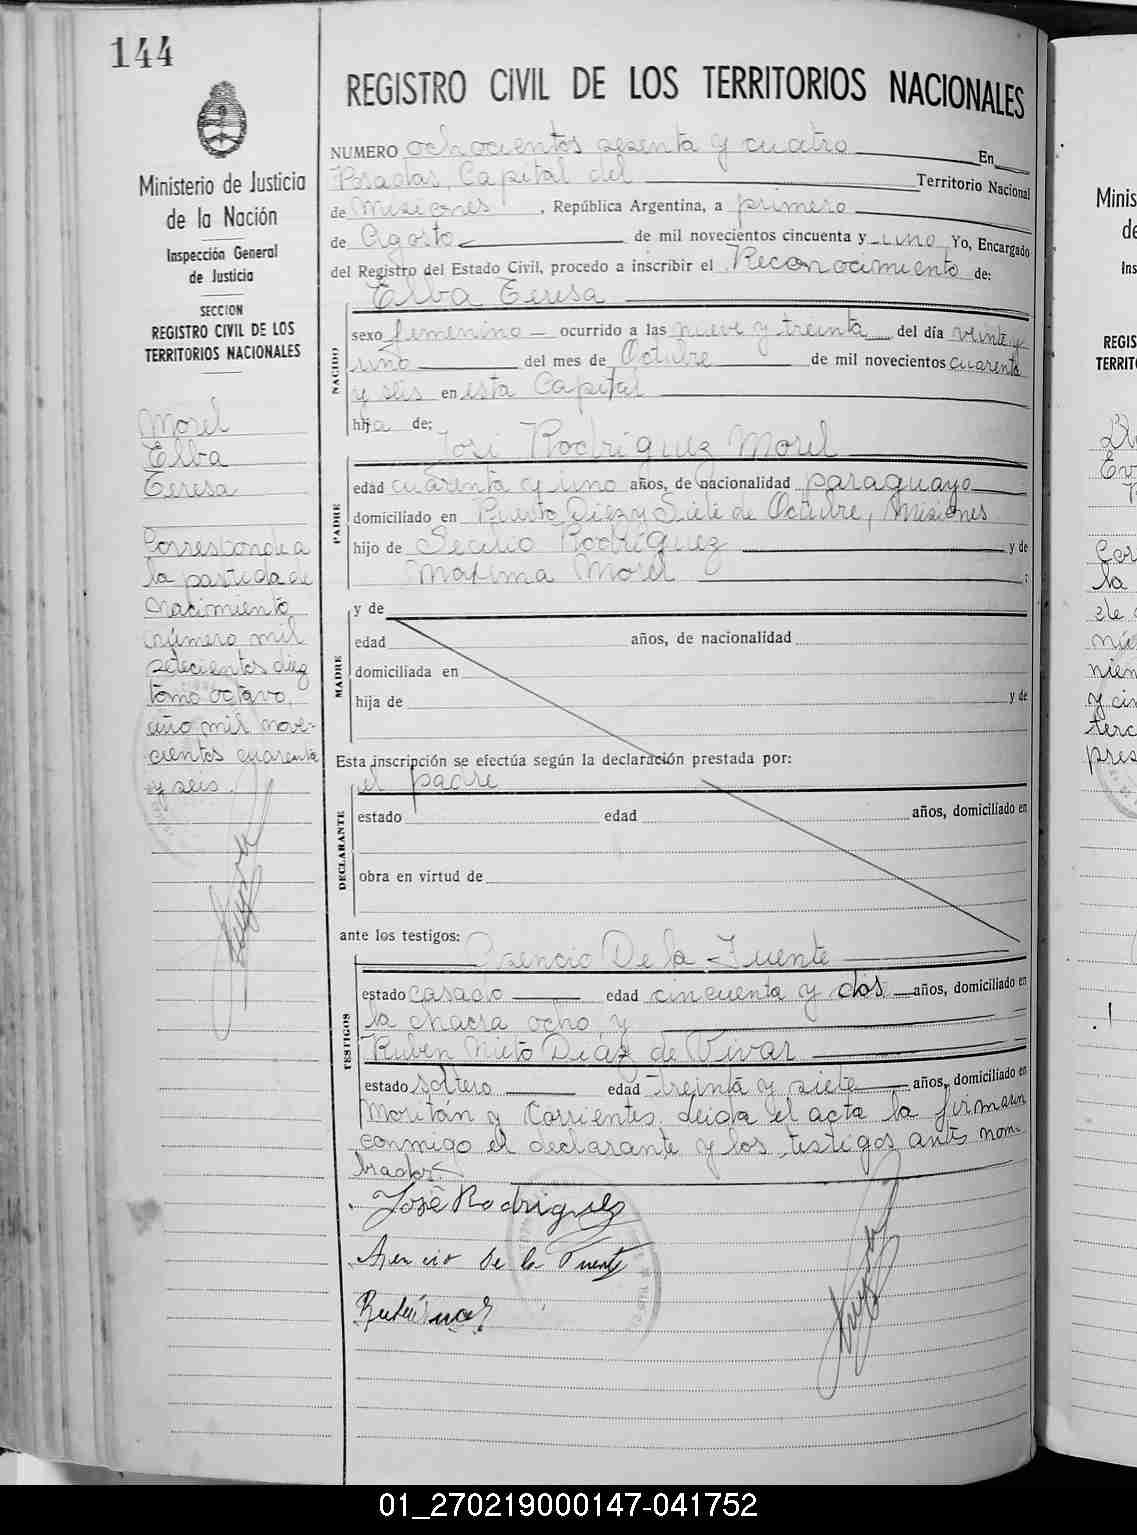 144
Ministerio de Justicia
de la Nación
Inspección General
de Justicia
SECCION
REGISTRO CIVIL DE LOS
TERRITORIOS NACIONALES
Morel
Elba
Teresa
Corresponde a
la partida de
nacimiento
número mil
setecientos diez
tomo octavo,
año mil nove-
cientos cuarenta
y seis.
REGISTRO CIVIL DE LOS TERRITORIOS NACIONALES
NUMERO ochocientos sesenta y cuatro En
Posadas, Capital del Territorio Nacional
de Misiones, República Argentina, a primero
de Agosto de mil novecientos cincuenta y uno Yo, Encargado
del Registro del Estado Civil, procedo a inscribir el Reconocimiento de:
Elba Teresa
NACIDO
sexo femenino ocurrido a las nueve y treinta del día veinte y
uno del mes de Octubre de mil novecientos cuarenta
y seis en esta Capital
hija de:
José Rodríguez Morel
PADRE
edad cuarenta y uno años, de nacionalidad paraguayo
domiciliado en Puerto Diez y Siete de Octubre, Misiones
hijo de Secilio Rodríguez y de
Maxima Morel ;
MADRE
y de
edad años, de nacionalidad
domiciliada en
hija de y de
Esta inscripción se efectúa según la declaración prestada por:
el padre
DECLARANTE
estado edad años, domiciliado en
obra en virtud de
ante los testigos:
Asencio De la Fuente
TESTIGOS
estado casado edad cincuenta y dos años, domiciliado en
la chacra ocho, y
Rubén Nieto Diáz de Vivar
estado soltero edad treinta y siete años, domiciliado en
Moritan y Corrientes. Leida el acta la firman
conmigo el declarante y los testigos antes nom-
brados
José Rodriguez
Asencio De la Fuente
01_270219000147-041752